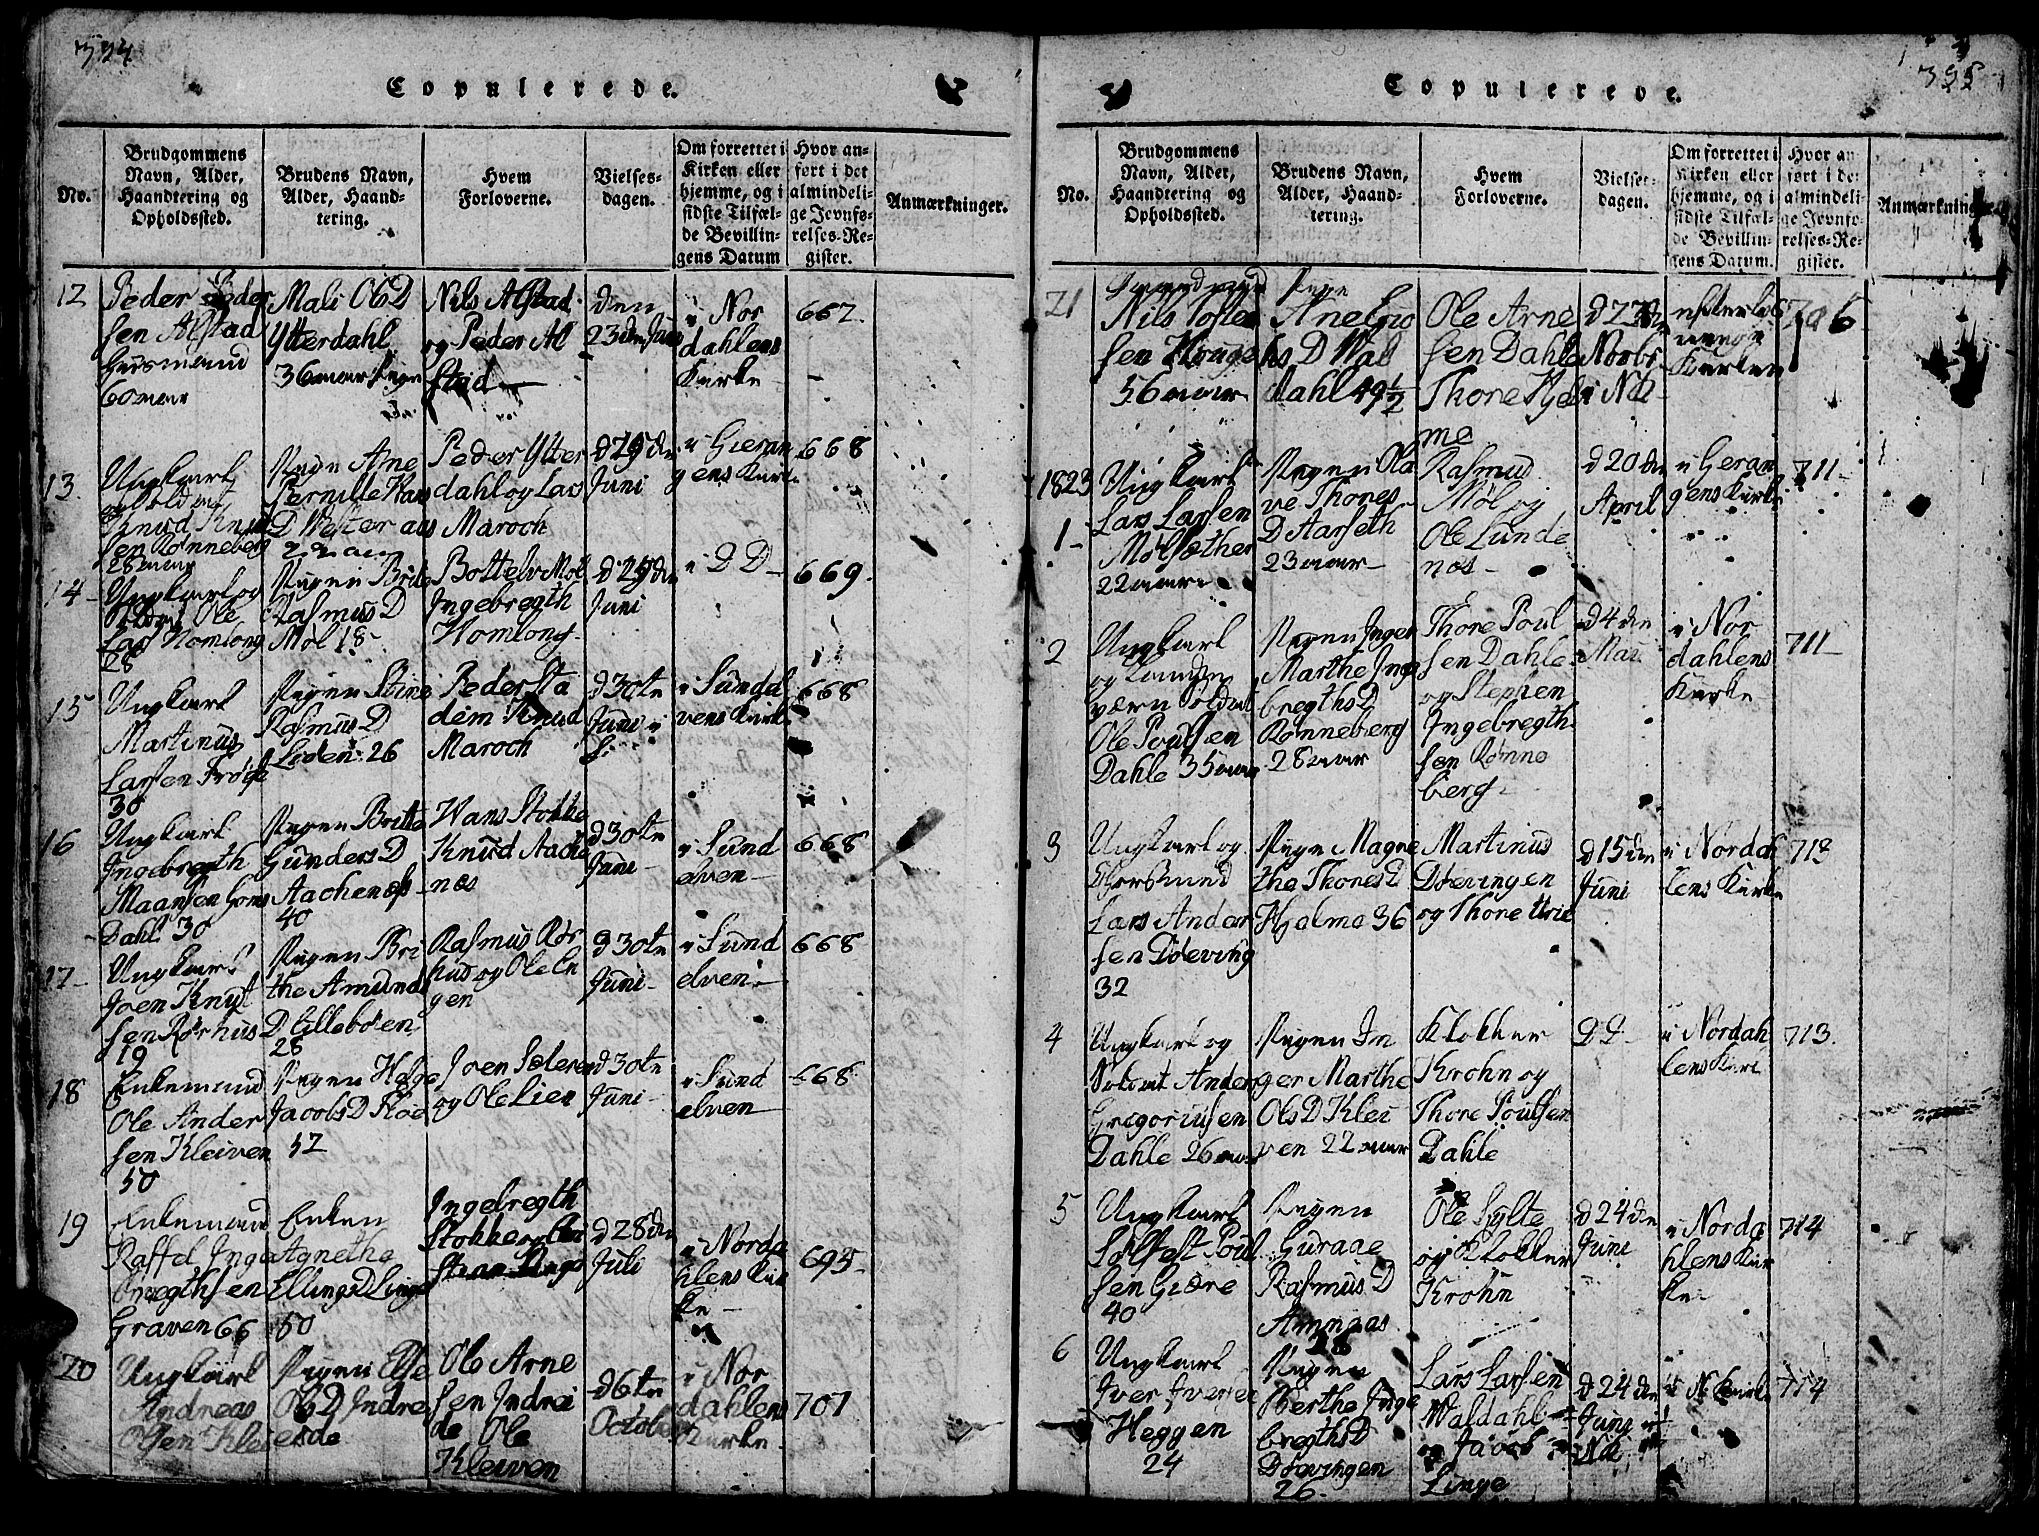 394
Copulerede.
No.
Brudgommens
Navn, Alder,
Haandtering og
Opholdssted.
Brudens Navn,
Alder, Haand-
tering.
Hvem
Forloverne.
Vielses-
dagen.
Om forrettet i
Kirken eller
hjemme, og i
sidste Tilfæl-
de Bevillin-
gens Datum
Hvor an-
ført i det
almindeli-
ge Jevnfø-
relses-Re-
gister.
Anmærkninger.
12
Peder Peder
sen Alstad
Huusmand
60 aar
Mali Ols D
Ytterdahl
36 aar Pige
Nils Alstad
og Peder Al
stad
den
23de Juni
i Nor
dahlens
Kirke
667.
13.
Ungkarl
og Soldat
Knud Knud
sen Rønneberg
28 aar
Pigen Ane
Pernille Hans
D Westeraas
22 aar
Peder Ytter
dahl og Lars
Maroch
d 25de
Juni
i Gieran
gens Kirke
668
14
Ungkarl og
Soldat Ole
Lars Homlong
28
Pigen Brite
Rasmus D
Møl 18
Bottelv Møl
Ingebregth
Homlong
d 25de
Juni
i D D
669.
15
Ungkarl
Martinus
Larsen Frøise
30
Pigen Stine
Rasmus D
Lioen 26
Peder Sta
dem Knud
Maroch
d 30te
Juni i
S.
i Sundel
vens Kirke
668
16
Ungkarl
Ingebregth
Maansen Goms
Dahl 30
Pigen Britte
Gunders D
Aachenæs
40
Hans Stokke
Knud Aache
næs
d 30te
Juni
i Sund
elven
668
17
Ungkarl
Joen Knut
sen Rørhus
19
Pigen Bri
the Amunds
D Lillebøen
28
Rasmus Rør
hus og Ole En
gen
d 30te
Juni
i Sund
elven
668
18
Enkemand
Ole Ander
sen Kleiven
50
Pigen Helge
Jacobs D Floe
52
Joen Sæteren
og Ole Lien
d 30te
Juni
i Sund
elven
668
19
Enkemand
Raffel Inge
bregthsen
Graven 66
Enken
Agnethe
Ellings D Linge
50
Ingebregth
Stokke og
d 28de
Juli
i Norda
hlens Kir
ke
695
20
Ungkarl
Andreas
Olsen Klei
Pigen Else
Ols D Indre
eide
Ole Arne
sen Indrei
de Ole
Kleiven
d 6te
October
i Nor
dahlens
Kirke
707
395
Copulerede.
No.
Brudgommens
Navn, Alder,
Haandtering og
Opholdssted.
Brudens Navn,
Alder, Haand-
tering.
Hvem
Forloverne.
Vielses-
dagen.
Om forrettet i
Kirken eller
hjemme, og i
sidste Tilfæl-
de Bevillin-
gens Datum.
Hvor an-
ført i det
almindeli-
ge Jevnfø-
relses-Re-
gister.
Anmærkninger.
21
Nils Joste
sen Houge
56 aar
Pige
Ane Gro
hs D Wal
dahl 49½
Ole Arne
sen Dahle
Thore Hjel
me
d 22de
Novbr
i Nd
Kirken
706
1823
1
Ungkarl
Lars Larsen
Mølsæther
22 aar
Pigen Ola
ve Thores
D Aarseth
23 aar
Rasmus
Møl og
Ole Lunde
næs
d 20de
April
i Geran
gens Kirke
711
2
Ungkarl
og Lande
værn Soldat
Ole Poulsen
Dahle 35 aar
Pigen Inger
Marthe Inge
bregths D
Rønneberg
28 aar
Thore Poul
sen Dahle
og Stephen
Ingebregth
sen Rønne
berg
d 4de
Mai
i Nor
dahlens
Kirke
711
3
Ungkarl og
Lars Ander
sen Døeving
32
Pigen Magne
the Thores D
Hjelme 36
Martinus
Døevingen
og Thore Urie
d 15de
Juni
i Nordah
lens Kirke
713
4
Ungkarl og
Soldat Anders
Gregoriusen
Dahle 26 aar
Pigen In
ger Marthe
Ols D Klei
ven 22 aar
Klokker
Krohn og
Thore Poulsen
Dahle
D D
i Nordah
lens Kirke
713.
5
Ungkarl
Solfest Poul
sen Giære
40
Pigen
Guraae
Rasmus D
Ammaas
28
Ole Sylte
og Klokker
Krohn
d 24de
Juni
i Norda
hlens Kir
ke
714
6
Ungkarl
Iver Iversen
Heggen
24
Pigen
Berthe Inge
bregths D
Døevingen
26.
Lars Larsen
Waldahl
og Jacob
Linge
d 24de
Juni i
Nd
i N Kirke
714